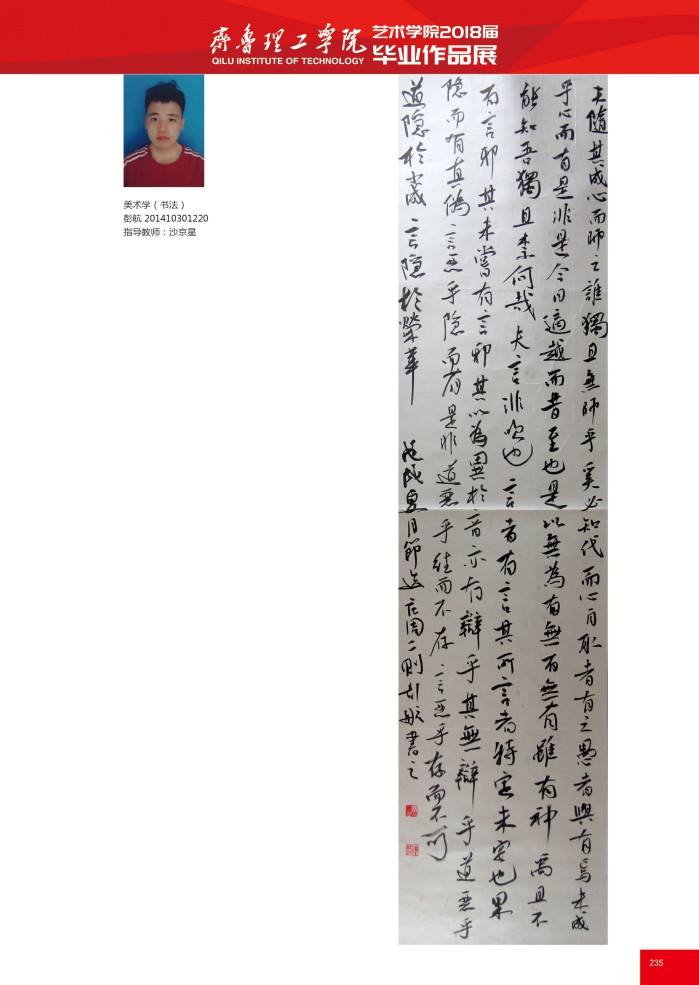 齐鲁理工学院
QILU INSTITUTE OF TECHNOLOGY
艺术学院2018届
毕业作品展
美术学（书法）
彭航 201410301220
指导教师：沙京星
夫隨其成心而師之誰獨且無師乎奚必知代而心自取者有之愚者與有焉未成
乎心而有是非是今日適越而昔至也是以無為有無有為有雖有神禹且不
能知吾獨且柰何哉夫言非吹也言者有言其所言者特定未定也果
有言邪其未嘗有言邪其以為異於音亦有辯乎其無辯乎道惡乎
隱而有真偽言惡乎隱而有是非道惡乎往而不存言惡乎存而不可
道隱於小成言隱於榮華
戊戌夏月節選莊周二則彭航書之
235